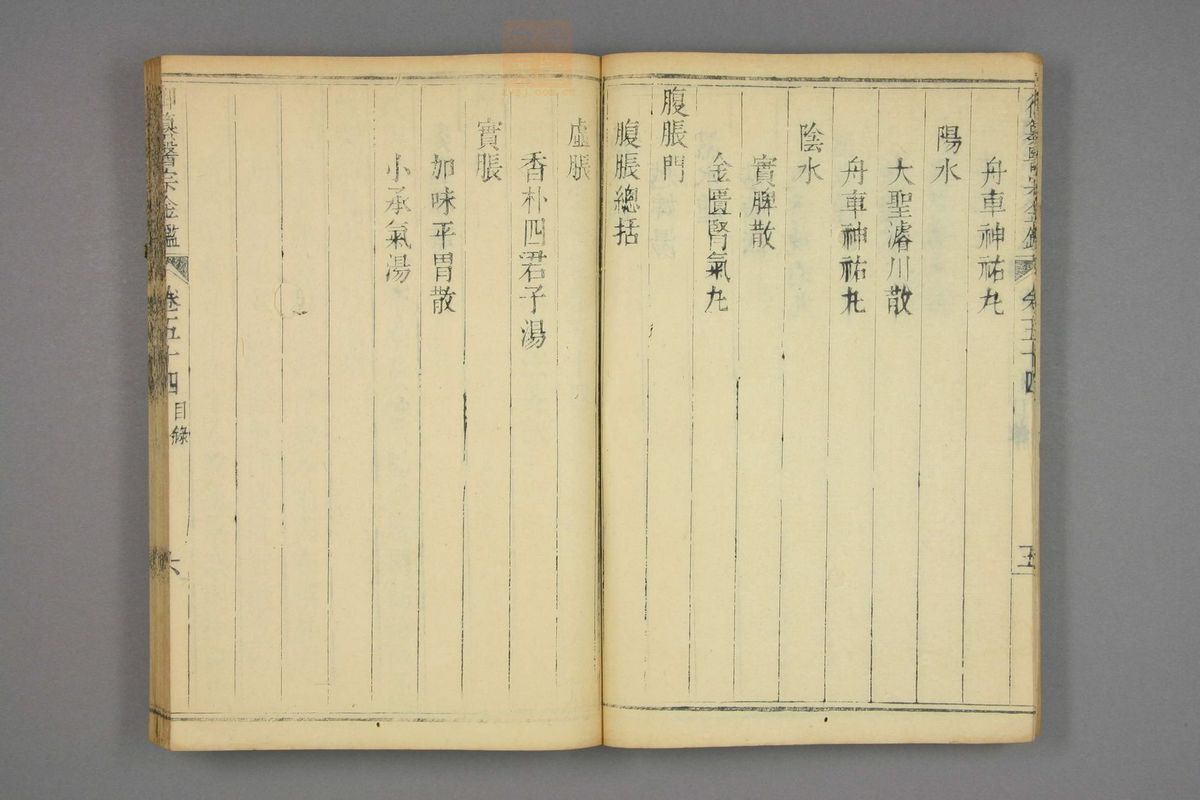 舟車神祐丸
陽水
大聖濬川散
舟車神祐丸
陰水
實脾散
金匱腎氣丸
腹脹門
腹脹總括
虛脹
香朴四君子湯
實脹
加味平胃散
小承氣湯
御纂醫宗金鑑
卷五十四
目錄
六
御纂醫宗金鑑
卷五十四
五